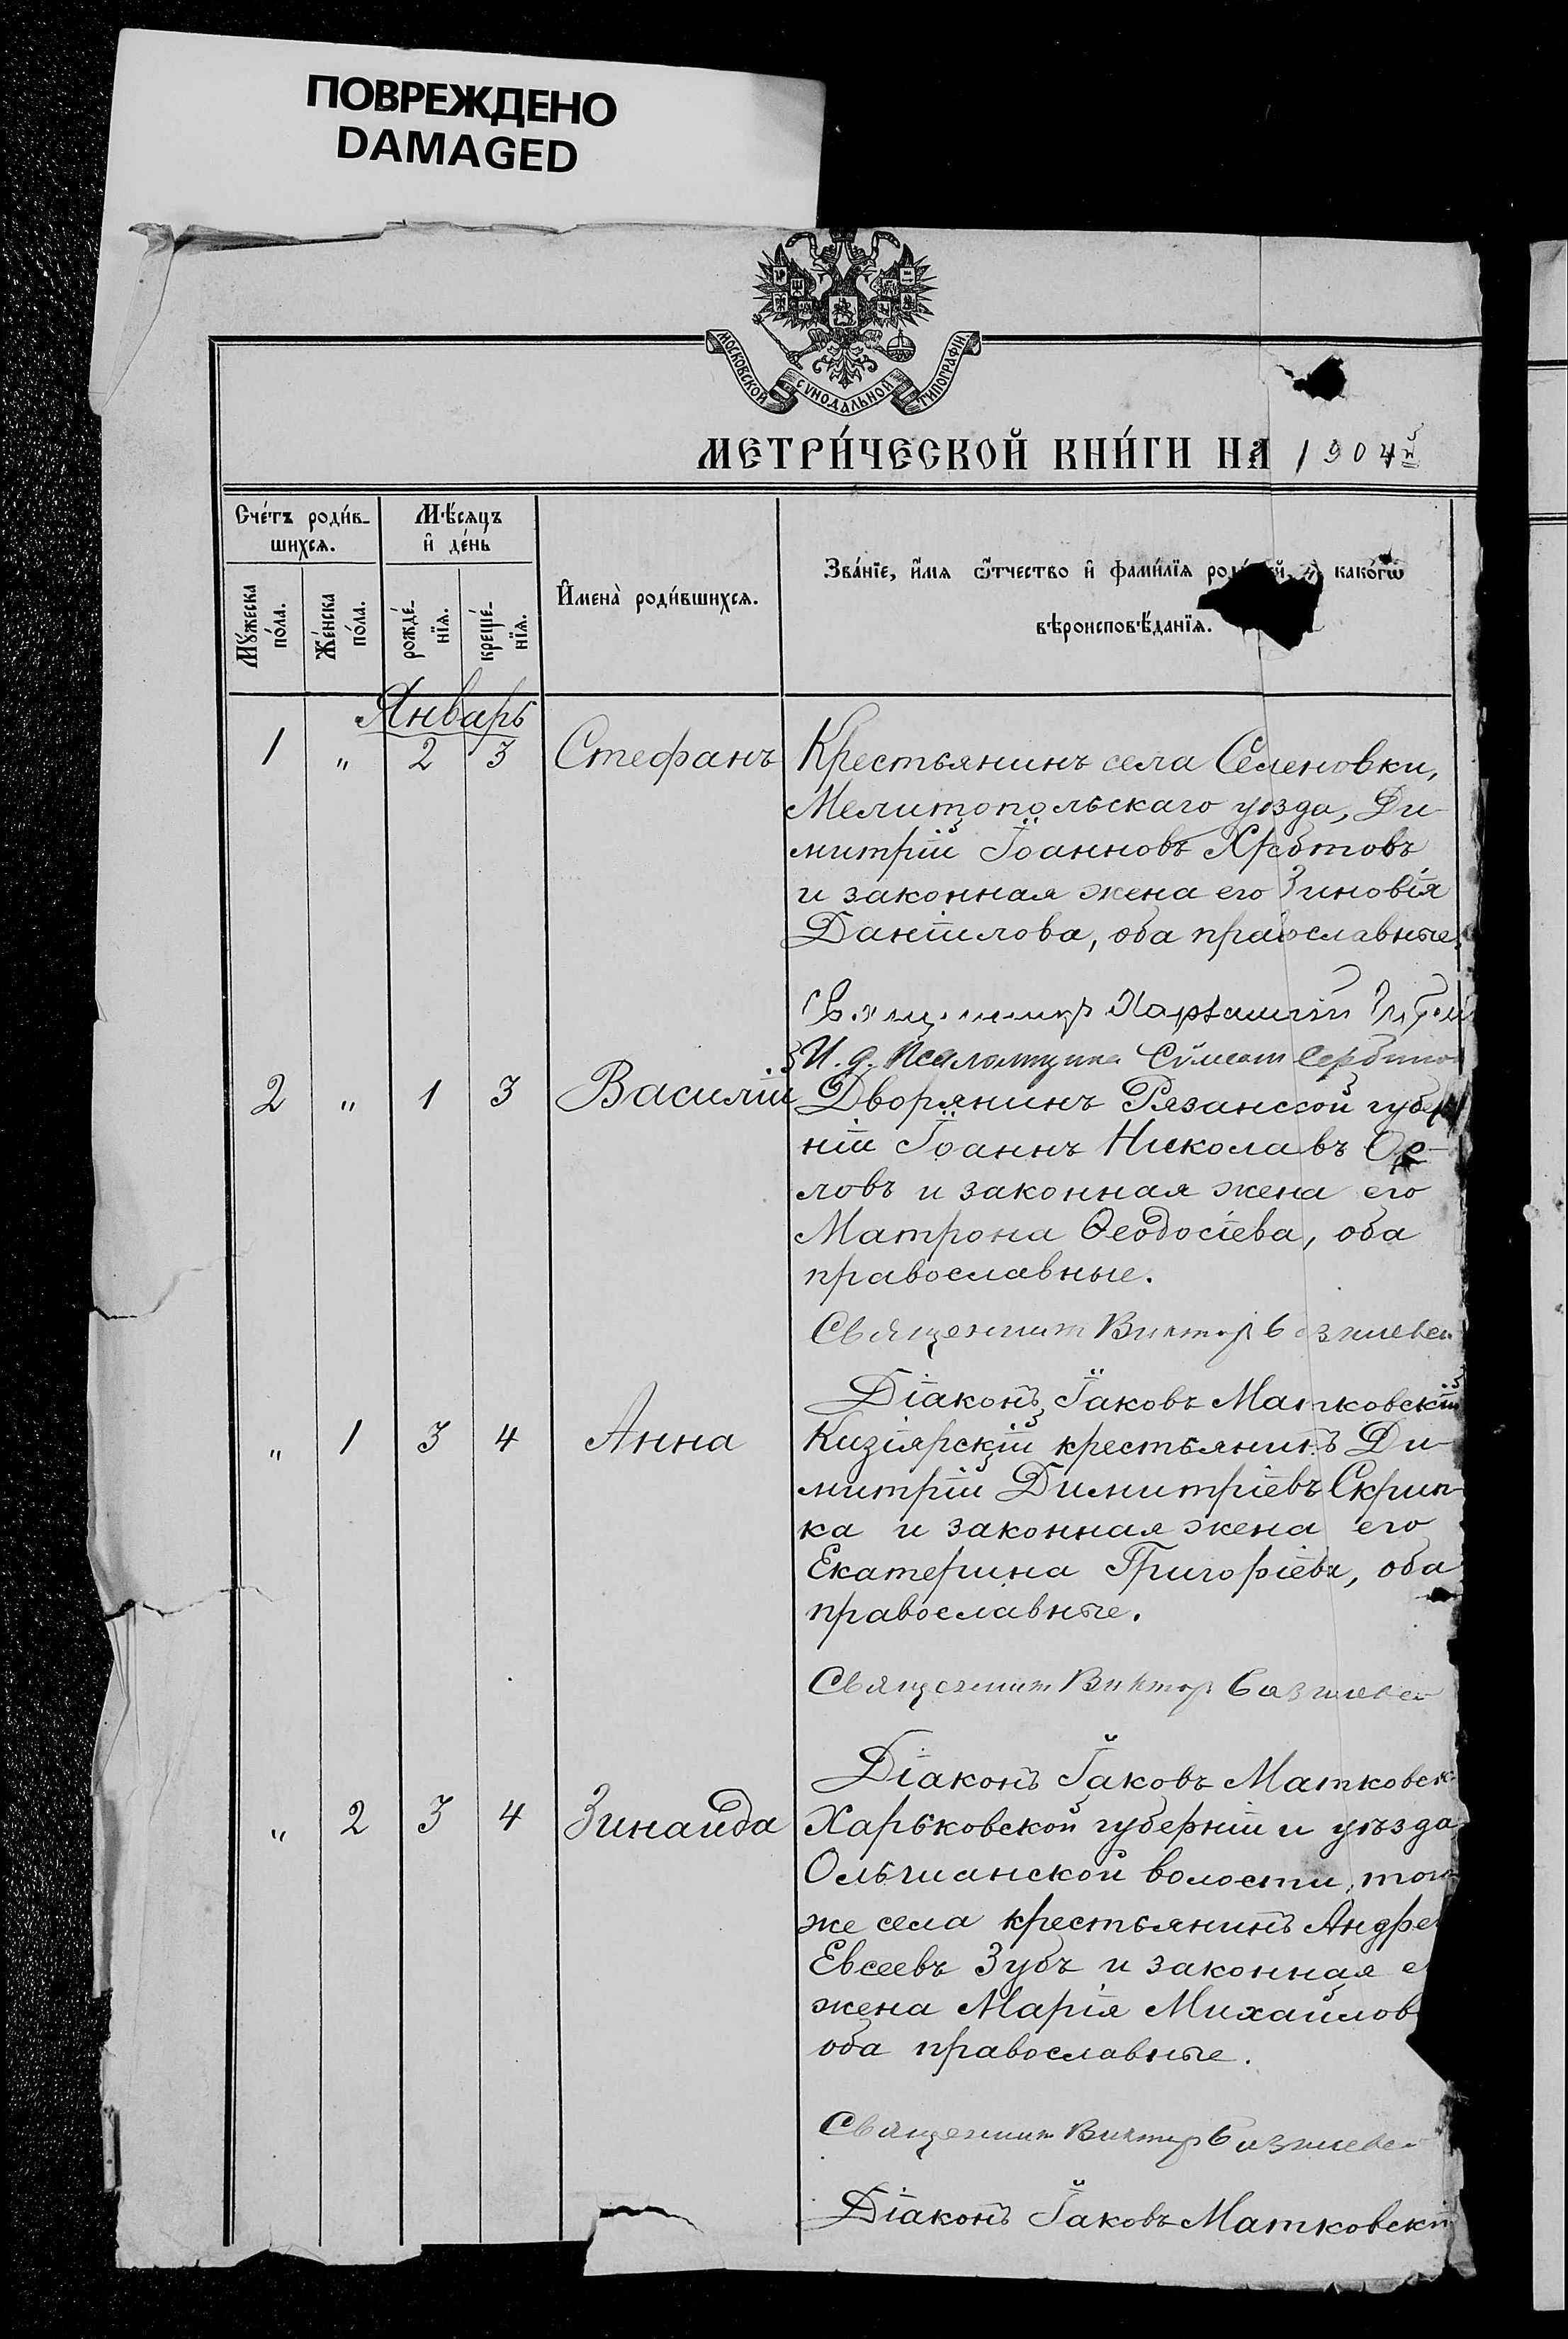 ПОВРЕЖДЕНО
DAMAGED
МОСКОВСКОЙ СѴНОДАЛЬНОЙ ТИПОГРАФІИ
МЕТРИ́ЧЕСКОЙ КНИ́ГИ НА 1904й
Сче́тъ роди́в-
шихсѧ.
Мѣ́сѧцъ
и҆ де́нь
И҆мена̀ роди́вшихсѧ.
Зва́нїе, и҆́мѧ ѻ҆́тчество и҆ фами́лїѧ какогѡ
вѣроисповѣ́данїѧ.
Мꙋ́жеска
по́ла.
Же́нска
по́ла.
рожде́-
нїѧ.
креще́-
нїѧ.
Январь
1 " 2 3 Стефанъ Крестьянинъ села Семеновки,
Мелитопольскаго уѣзда, Ди-
митрій Іоанновъ
и законная жена его Зиновія
Даніилова, оба православные.
И. д. Псаломщика
2 " 1 3 Василій Дворянинъ Рязанской губер
ніи Іоаннъ Николавъ Ор-
ловъ и законная жена его
Матрона Ѳеодосіева, оба
православные.
Священникъ Викторъ
Діаконъ Іаковъ Матковскій
" 1 3 4 Анна Кизіярскій крестьянинъ Ди-
митрій Димитріевъ Скрип-
ка и законная жена его
Екатерина Григоріева, оба
православные.
Священникъ Викторъ
Діаконъ Іаковъ Матковск
" 2 3 4 Зинаида Харьковской губерніи и уѣзда
Ольшанской волости, того
же села крестьянинъ Андре
Евсеевъ Зубъ и законная е
жена Марія Михайлов
оба православные.
Священникъ Викторъ
Діаконъ Іаковъ Матковскі